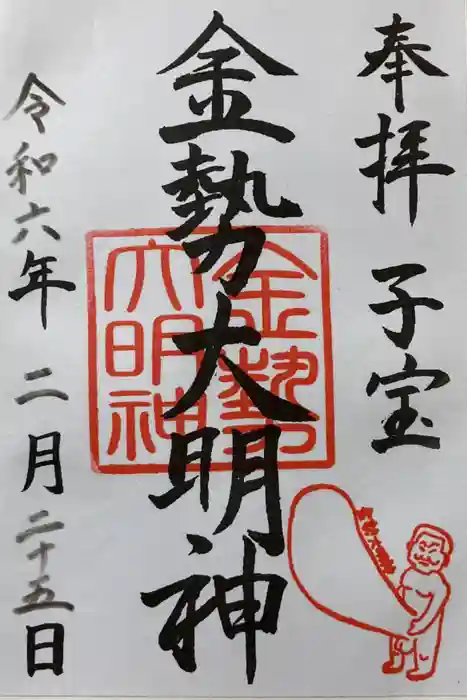 奉拝 子宝
金勢大明神
令和六年 二月二十五日
金勢
大明神